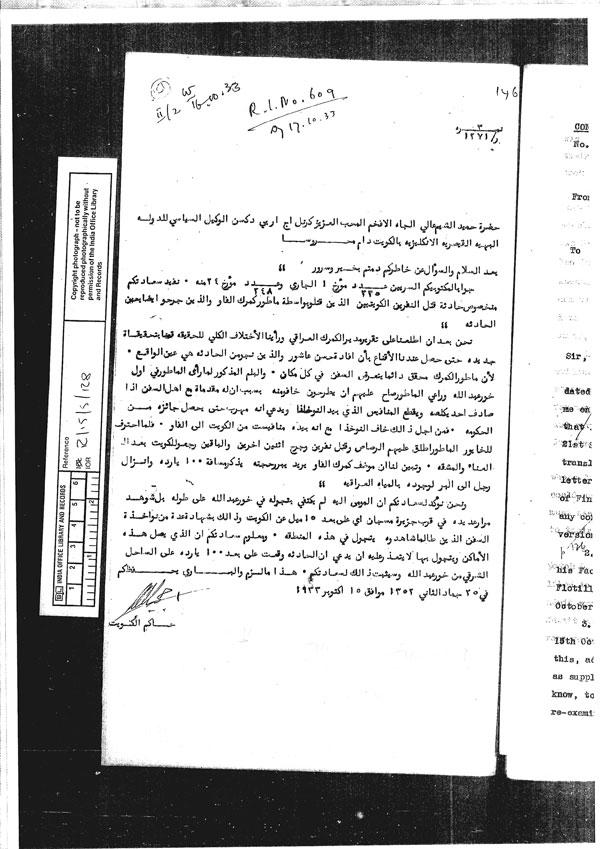 146
W 16.10.33
II/2
R.I.No. 609
17.10.33
نمره ٣
١٢٧١
حضرة حميد الشيم عالي الجاه الافخم المحب العزيز كرنل اج اربي دكسن الوكيل السياسي للدوله
البهيه القيصريه الانكليزيه بالكويت دام محروسا
بعد السلام والسؤال عن خاطركم دمتم بخير وسرور
جوابا لمكتوبيكم السريين عدد ٣٣٥ مؤرخ ١ الجاري وعدد ٣٤٨ مؤرخ ١٤ منه • نفيد سعادتكم
بخصوص حادثة قتل النفرين الكويتيين الذين قتلو بواسطة ماطور كمرك الفاو والذين جرحو ايضا بحين
الحادثه
نحن بعد ان اطلعنا على تقرير مدير الكمرك العراقي وراينا الأختلاف الكلي للحقيقه قمنا بتحقيقات
جديده حتى حصل عندنا الأقناع بأن افادة محسن عاشور والذين نجو من الحادثه هي عين الواقع •
لأن ماطور الكمرك محقق دائما يتعرض السفن في كل مكان • والبلم المذكور لما رأى الماطور في اول
خور عبدالله وراعي الماطور صاح عليهم ان يطرحون خافو منه بسبب ان له مقدمة مع اهل السفن اذا
صادف احد يكلعه ويقطع المنافيس الذي بيد النوخذا ويدعي انه مهرب حتى يحصل جائزه من
الحكومه • فمن اجل ذالك خاف النوخذا مع انه بيده منافيست من الكويت الى الفاو • فلما احترف
للخابور الماطور اطلق عليهم الرصاص وقتل نفرين وجرح اثنين اخرين والباقين رجعو للكويت بعد
العناء والمشقه • وتبين لنا ان موظف كمرك الفاو يريد يبرر حجته بذكر مسافة ١٠٠ يارده وانزال
رجل الى البر لوجوده بالمياه العراقيه
ونحن نؤكد لسعادتكم ان المومى اليه لم يكتفي بتجوله في خور عبدالله على طوله بل شوهد
مرار عديده في قرب جزيرة مسجان اي على بعد ١٥ ميل عن الكويت وذالك بشهادة عدة من نواخذة
السفن الذين طالما شاهدوه يتجول في هذه المنطقه • ومعلوم سعادتكم ان الذي يصل هذه
الأماكن ويتجول بها لا يتعذر عليه ان يدعي ان الحادثه وقعت على بعد ١٠٠ يارده على الساحل
الشرقي من خور عبدالله وسيثبت ذالك لسعادتكم • هذا ما لزم والباري يحفظكم
في ٢٥ جماد الثاني ١٣٥٢ موافق ١٥ اكتوبر ١٩٣٣
حاكم الكويت
Copyright photograph - not to be
reproduced photographically without
permission of the India Office Library
and Records
Reference
IOR R/15/5/128
INDIA OFFICE LIBRARY AND RECORDS
1 2 3 4 5 6
1 2
CON
No.
From
To
Sir,
dated
me on
that
21st
transl
letter
of Fin
any co
version
p. S.
his Fac
Flotill
October
S.
15th Oc
this, ad
as suppl
know, to
re-exami